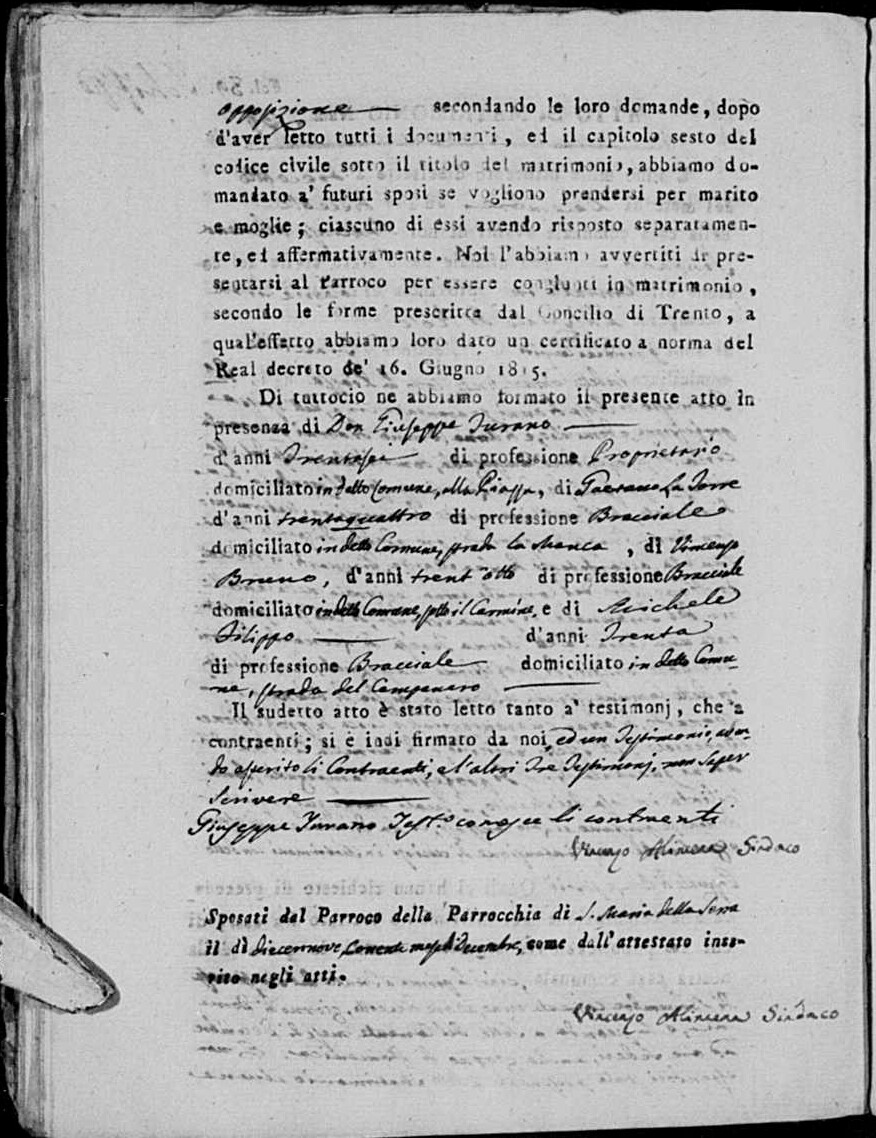 opposizione — secondando le loro domande, dopo
d'aver letto tutti i documenti, ed il capitolo sesto del
codice civile sotto il titolo del matrimonio, abbiamo do-
mandato a' futuri sposi se vogliono prendersi per marito
e moglie; ciascuno di essi avendo risposto separatamen-
te, ed affermativamente. Noi l'abbiamo avvertiti di pre-
sentarsi al Parroco per essere congiunti in matrimonio,
secondo le forme prescritte dal Concilio di Trento, a
qual'effetto abbiamo loro dato un certificato a norma del
Real decreto de' 16. Giugno 1815.
Di tuttociò ne abbiamo formato il presente atto in
presenza di Don Giuseppe Turano —
d'anni Trentasei di professione Proprietario
domiciliato in detto Comune, alla Piazza, di Gaetano La Torre
d'anni trentaquattro di professione Bracciale
domiciliato in detto Comune, strada la Manca, di Vincenzo
Bruno, d'anni trent'otto di professione Bracciale
domiciliato in detto Comune, sotto il Carmine, e di Michele
Filippo — d'anni Trenta
di professione Bracciale domiciliato in detto Comu-
ne, strada del Campanaro —
Il sudetto atto è stato letto tanto a' testimonj, che a
contraenti; si è indi firmato da noi, ed un Testimonio, aven-
do asserito li Contraenti, e l'altri Tre Testimonj, non saper
scrivere —
Giuseppe Turano Test.o conosce li contraenti
Vincenzo Alimena Sindaco
Sposati dal Parroco della Parrocchia di S. Maria della Serra
il dì diecennove, Corrente mese di Decembre, come dall'attestato inse-
rito negli atti.
Vincenzo Alimena Sindaco